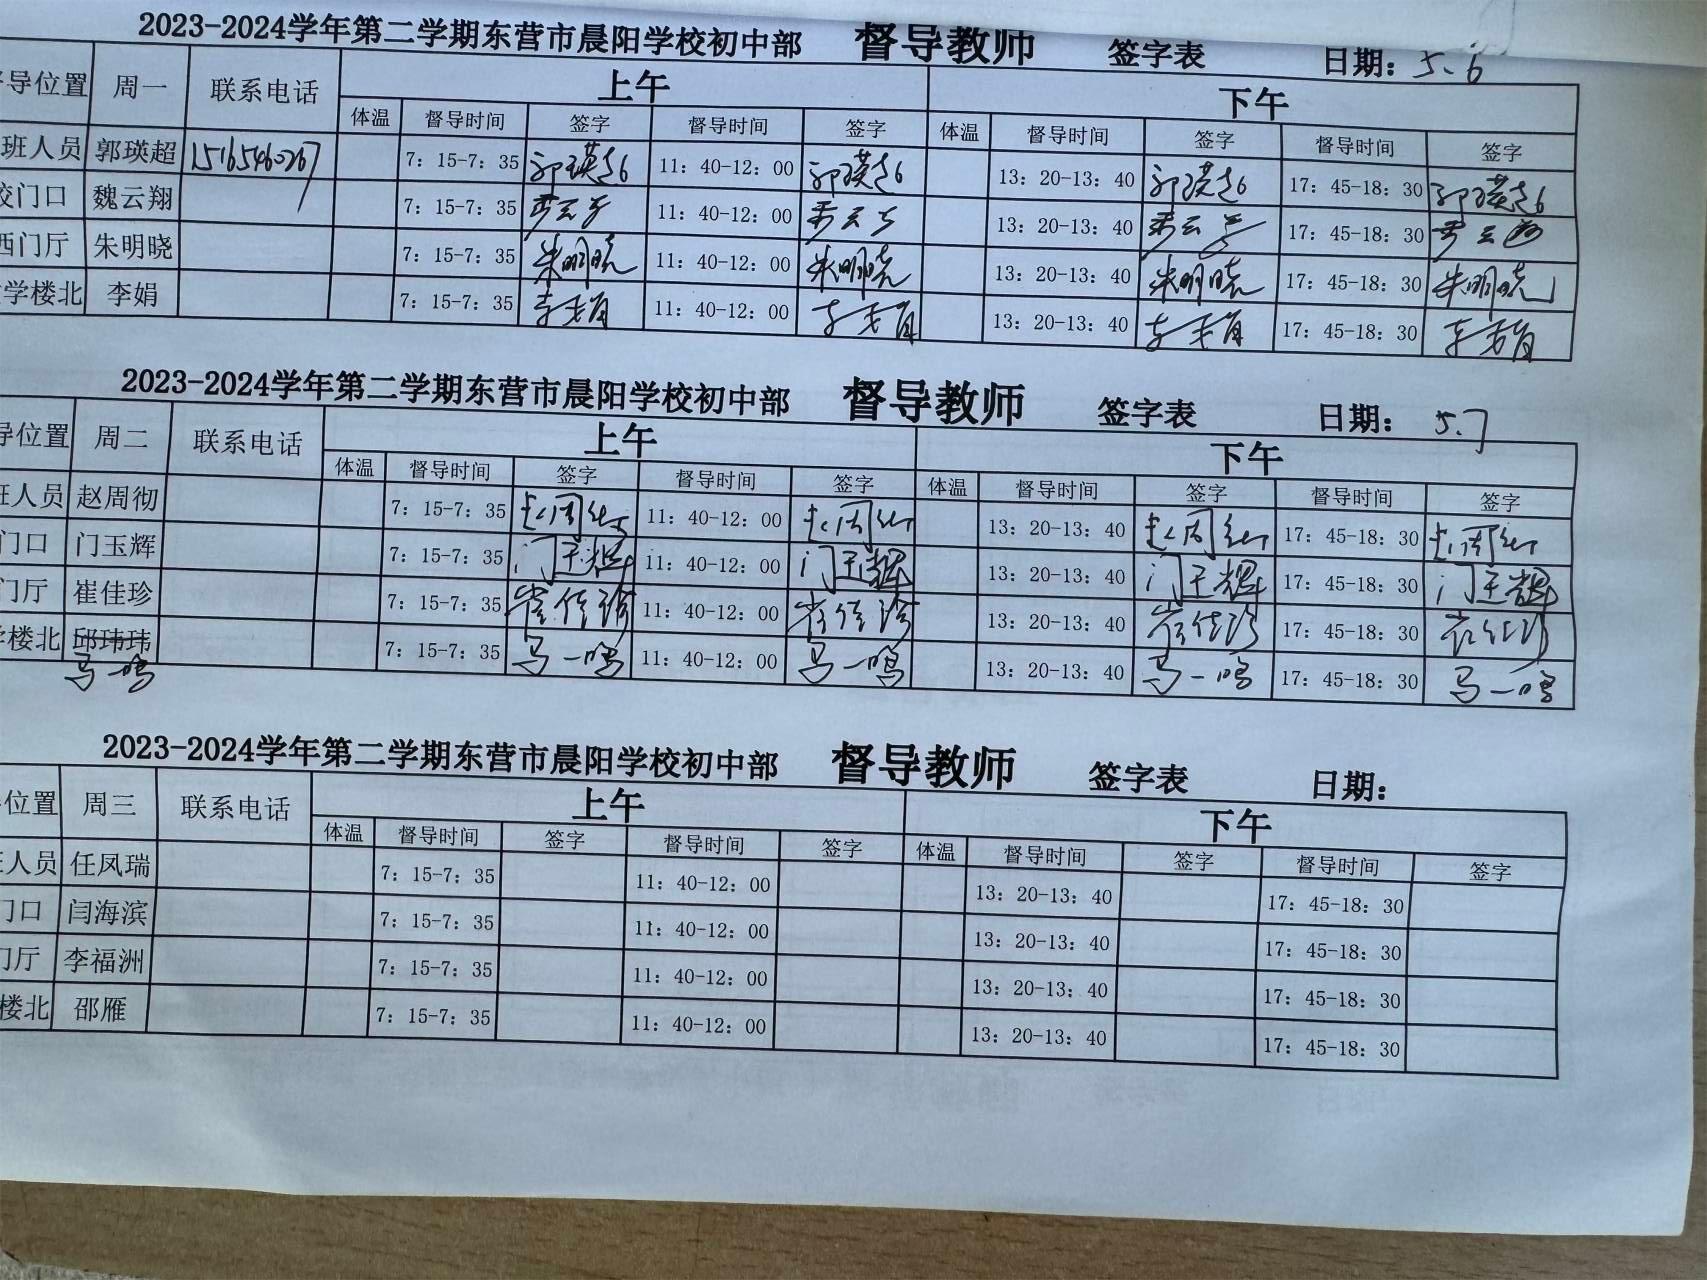 2023-2024学年第二学期东营市晨阳学校初中部 督导教师 签字表 日期：5.6
导位置 周一 联系电话 上午 下午
体温 督导时间 签字 督导时间 签字 体温 督导时间 签字 督导时间 签字
班人员 郭瑛超 15165460267 7：15-7：35 郭瑛超 11：40-12：00 郭瑛超 13：20-13：40 郭瑛超 17：45-18：30 郭瑛超
校门口 魏云翔 7：15-7：35 11：40-12：00 13：20-13：40 17：45-18：30
西门厅 朱明晓 7：15-7：35 朱明晓 11：40-12：00 朱明晓 13：20-13：40 朱明晓 17：45-18：30 朱明晓
学楼北 李娟 7：15-7：35 11：40-12：00 13：20-13：40 17：45-18：30
2023-2024学年第二学期东营市晨阳学校初中部 督导教师 签字表 日期：5.7
导位置 周二 联系电话 上午 下午
体温 督导时间 签字 督导时间 签字 体温 督导时间 签字 督导时间 签字
班人员 赵周彻 7：15-7：35 赵周彻 11：40-12：00 赵周彻 13：20-13：40 赵周彻 17：45-18：30 赵周彻
门口 门玉辉 7：15-7：35 门玉辉 11：40-12：00 门玉辉 13：20-13：40 门玉辉 17：45-18：30 门玉辉
门厅 崔佳珍 7：15-7：35 崔佳珍 11：40-12：00 崔佳珍 13：20-13：40 崔佳珍 17：45-18：30 崔佳珍
学楼北 邱玮玮 7：15-7：35 马一鸣 11：40-12：00 马一鸣 13：20-13：40 马一鸣 17：45-18：30 马一鸣
马一鸣
2023-2024学年第二学期东营市晨阳学校初中部 督导教师 签字表 日期：
位置 周三 联系电话 上午 下午
体温 督导时间 签字 督导时间 签字 体温 督导时间 签字 督导时间 签字
人员 任凤瑞 7：15-7：35 11：40-12：00 13：20-13：40 17：45-18：30
门口 闫海滨 7：15-7：35 11：40-12：00 13：20-13：40 17：45-18：30
门厅 李福洲 7：15-7：35 11：40-12：00 13：20-13：40 17：45-18：30
楼北 邵雁 7：15-7：35 11：40-12：00 13：20-13：40 17：45-18：30